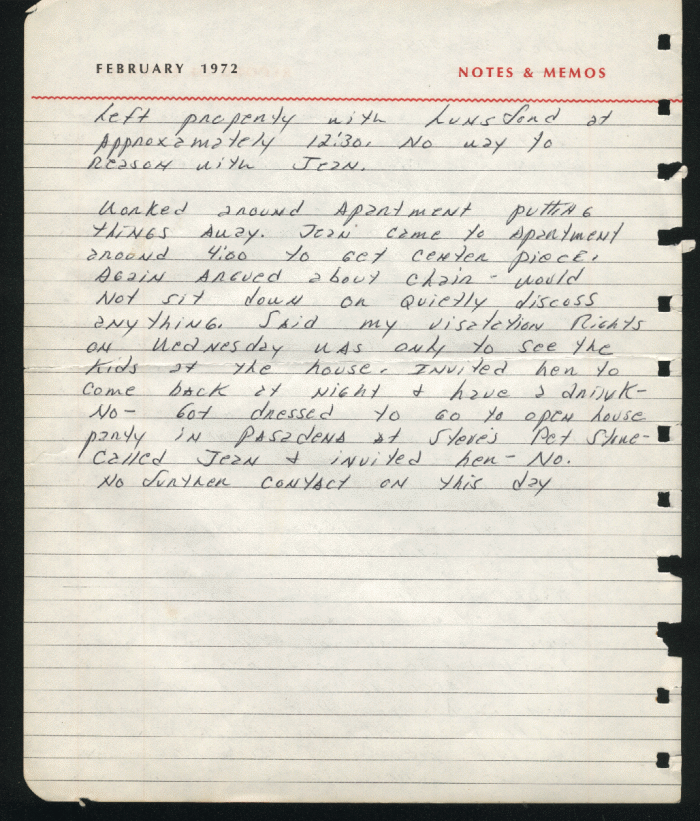 FEBRUARY 1972 NOTES & MEMOS
Left property with Lunsford at
Approxamately 12:30. No way to
Reason with Jean.
Worked around Apartment putting
things away. Jean came to Apartment
around 4:00 to get center piece.
Again Argued about chair - would
Not sit down or Quietly discuss
anything. Said my visatation Rights
on Wednesday was only to see the
Kids at the house. Invited her to
come back at Night & have a drink -
No - Got dressed to go to open house
party in Pasadena at Steve's Pet Store -
Called Jean & invited her - No.
No further contact on this day